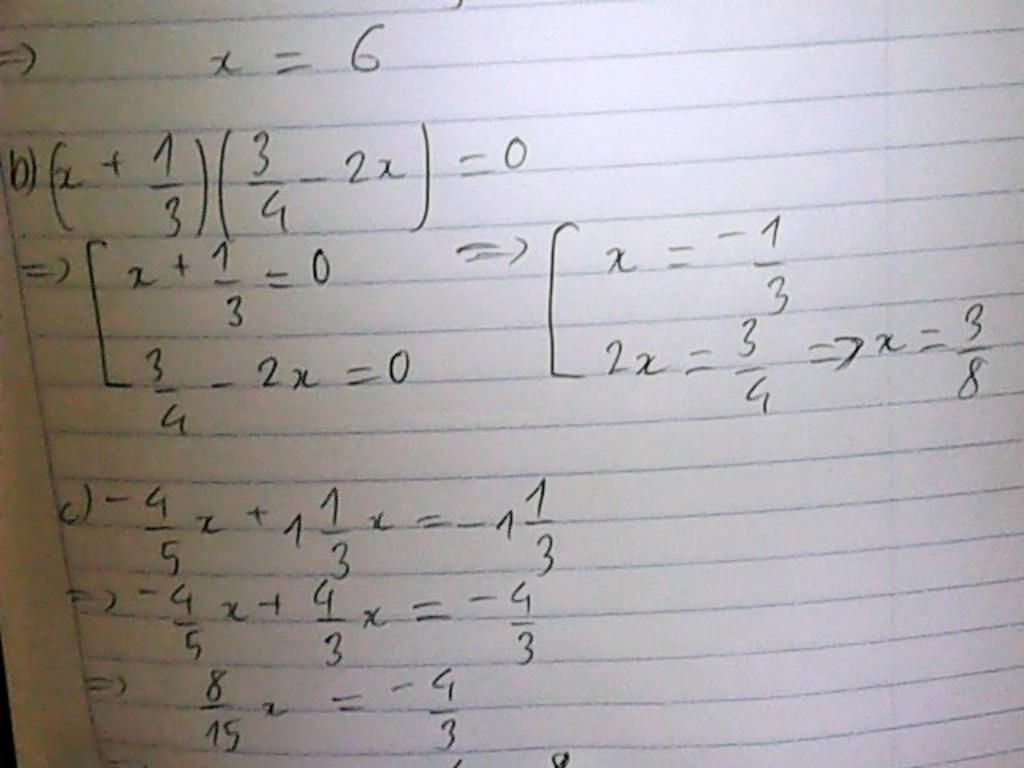 => x = 6
b) (x + 1/3)(3/4 - 2x) = 0
=> [ x + 1/3 = 0 => [ x = -1/3
3/4 - 2x = 0 2x = 3/4 => x = 3/8
c) -4/5 x + 1 1/3 x = -1 1/3
=> -4/5 x + 4/3 x = -4/3
=> 8/15 x = -4/3